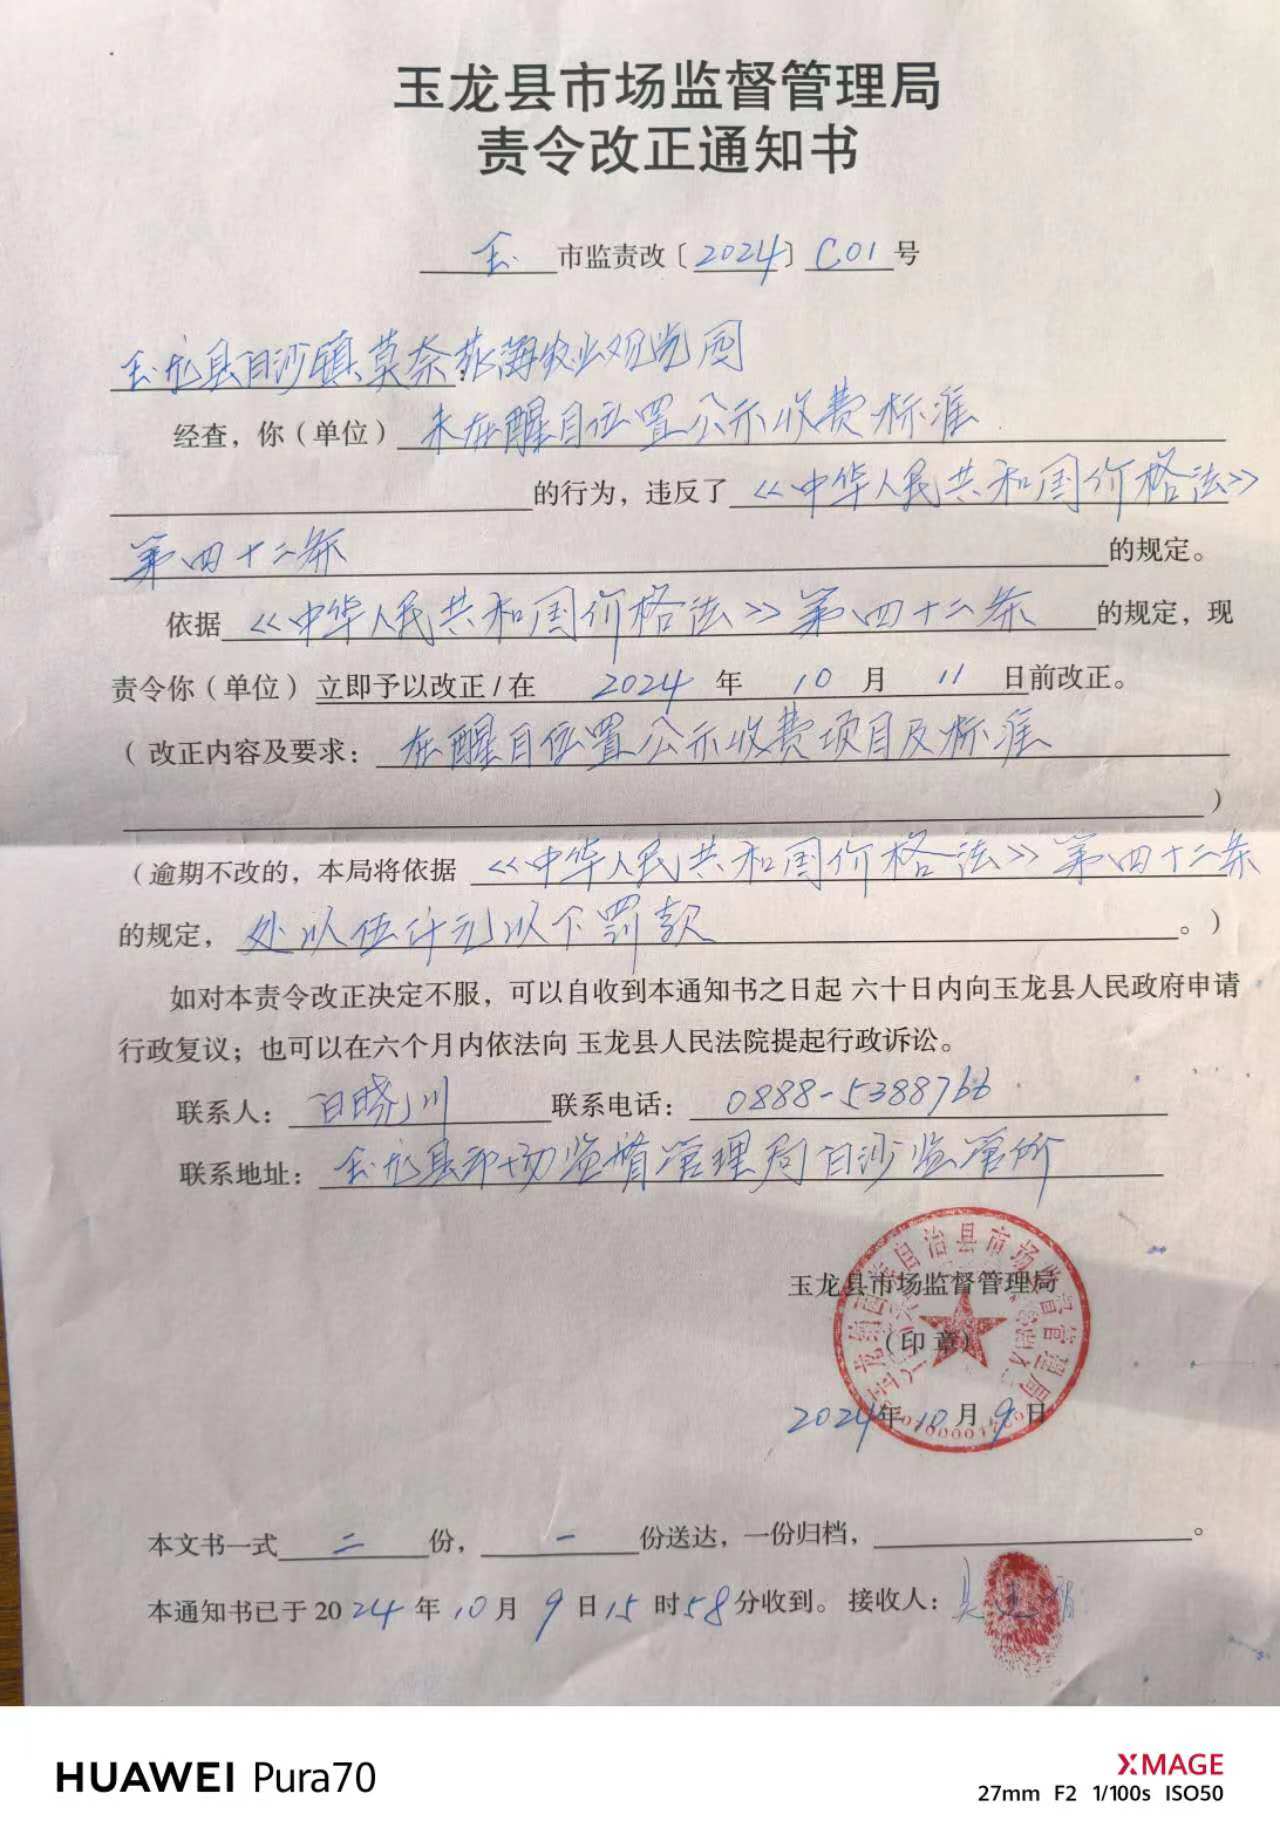 玉龙县市场监督管理局
责令改正通知书
玉 市监责改〔2024〕C01号
玉龙县白沙镇莫奈花海农业观光园
经查，你（单位）未在醒目位置公示收费标准
的行为，违反了《中华人民共和国价格法》
第四十二条的规定。
依据《中华人民共和国价格法》第四十二条的规定，现
责令你（单位）立即予以改正/在 2024 年 10 月 11 日前改正。
（改正内容及要求：在醒目位置公示收费项目及标准
）
（逾期不改的，本局将依据《中华人民共和国价格法》第四十二条
的规定，处以伍仟元以下罚款。）
如对本责令改正决定不服，可以自收到本通知书之日起 六十日内向玉龙县人民政府申请
行政复议；也可以在六个月内依法向 玉龙县人民法院提起行政诉讼。
联系人：白晓川 联系电话：0888-5388766
联系地址：玉龙县市场监督管理局白沙监管所
玉龙县市场监督管理局
（印章）
玉龙纳西族自治县市场监督管理局
2024年10月9日
本文书一式 二 份， 一 份送达，一份归档， 。
本通知书已于2024年10月9日15时58分收到。接收人：
HUAWEI Pura70
XMAGE
27mm F2 1/100s ISO50